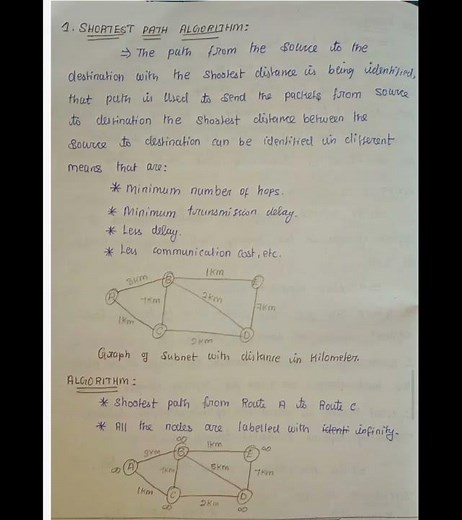 1. SHORTEST PATH ALGORITHM:
⇒ The path from the source to the
destination with the shortest distance is being identified,
that path is used to send the packets from source
to destination the shortest distance between the
source to destination can be identified in different
means that are:
* Minimum number of hops.
* Minimum transmission delay.
* Less delay.
* Less communication cost, etc.
3km B 1km E
A 7km 2km 7km
1km C 2km D
Graph of Subnet with distance in Kilometer.
ALGORITHM:
* Shortest path from Route A to Route C
* All the nodes are labelled with infinity.
∞ B 1km E ∞
3km
∞ A 5km 7km
1km C 2km D
∞ ∞